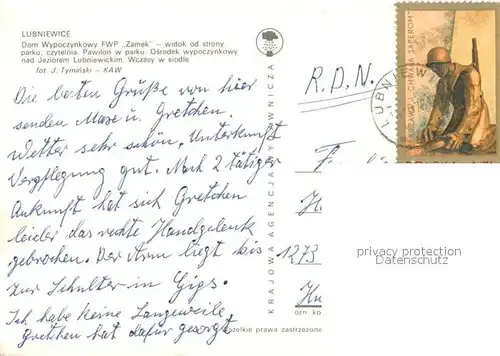 LUBNIEWICE
Dom Wypoczynkowy FWP „Zamek" – widok od strony
parku; czytelnia. Pawilon w parku. Ośrodek wypoczynkowy
nad Jeziorem Lubniewickim. Wczasy w siodle
fot. J. Tymiński – KAW
Die besten Grüße von hier
senden Maxe u. Gretchen.
Wetter sehr schön, Unterkunft
Verpflegung gut. Nach 2 tätiger
Ankunft hat sich Gretchen
leider das rechte Handgelenk
gebrochen. Der Arm liegt bis
zur Schulter in Gips.
Ich habe keine Langeweile,
Gretchen hat dafür gesorgt
KRAJOWA AGENCJA WYDAWNICZA
R.D.N.
LUBNIEW
CHWAŁA SAPEROM
1273
privacy protection
Datenschutz
ozn ko
zelkie prawa zastrzeżone